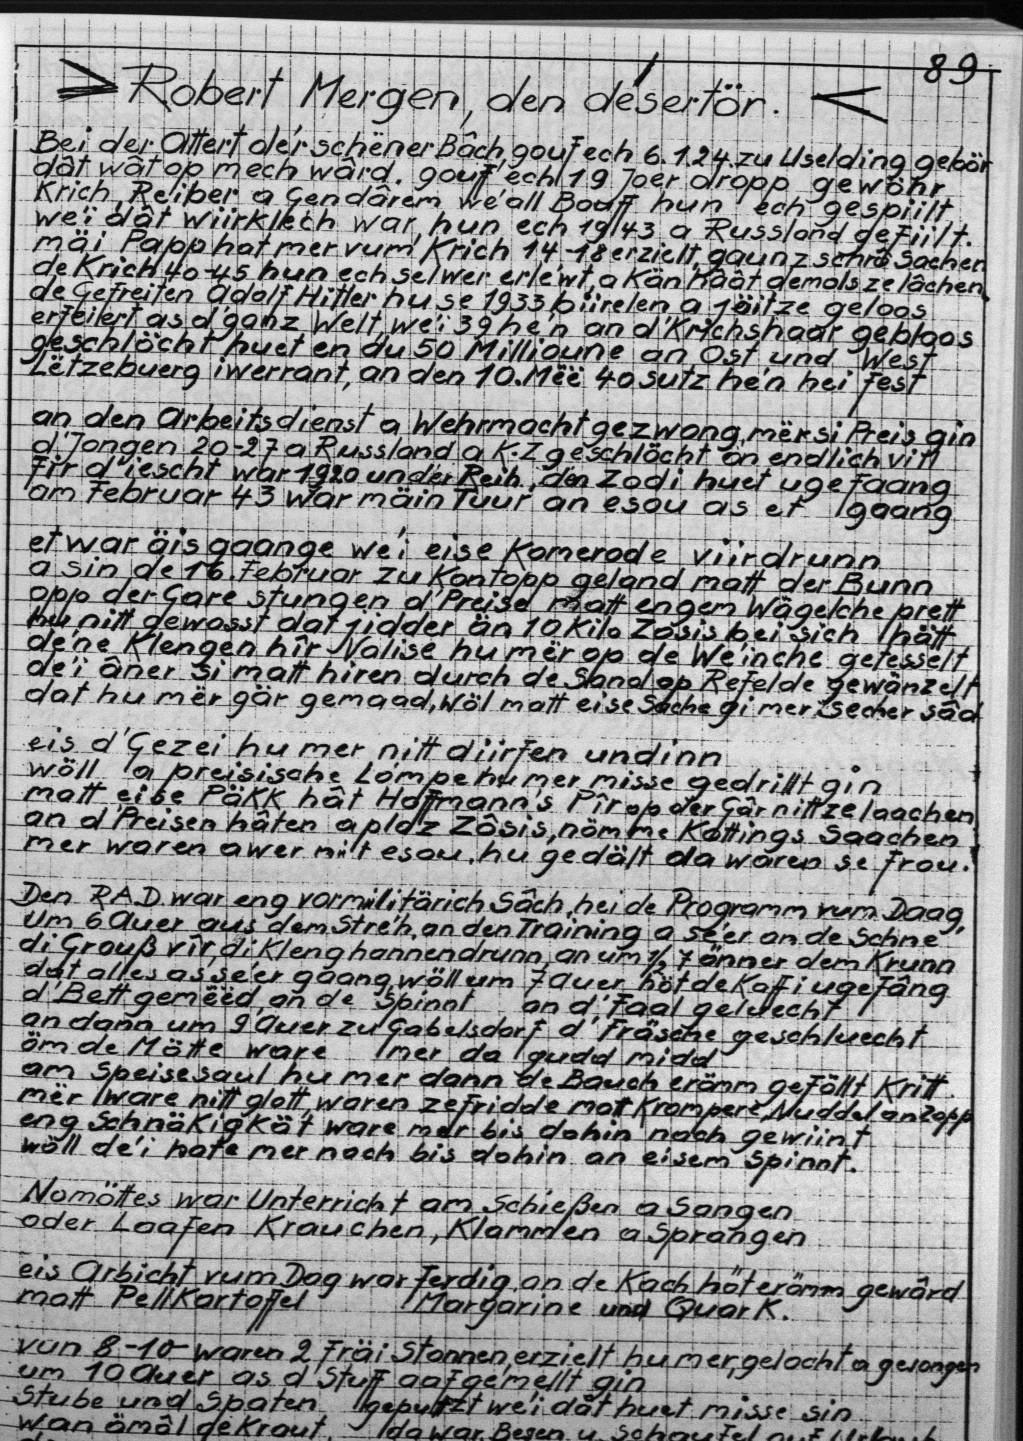 89
Robert Mergen, den désertör.
Bei der Attert de'r schëner Bâch, gouf ech 6.1.24. zu Uselding gebör
dât wât op mech wârd. gouf ech 19 Joer dropp gewöhr
Krich, Reiber a Gendârem we'all Bouf hun ech gespiilt
we'i dât wiirklech war, hun ech 19/43 a Russland gefiilt.
mäi Papp hat mer vum Krich 14-18 erzielt, gaunz schro Sachen
de Krich 40-45 hun ech selwer erlewt, a kän hâât demols ze lâchen
de Gefreiten Adolf Hitler hu se 1933 biirelen a jäitze geloos
erfeilert as d'ganz Welt, we'i 39 he'n an d'Krichshaar gebloos
geschlöcht huet en du 50 Millioune an Ost und West
Lëtzebuerg iwerrant, an den 10. Mëë 40 sutz he'n hei fest
an den Arbeitsdienst a Wehrmacht gezwong, mër si Preis gin
d'Jongen 20-27 a Russland a K.Z geschlöcht an endlich vill
Fir d'iescht war 1920 under Reih, den Zodi huet ugefaang
am Februar 43 war mäin Tuur an esou as et gaang
et war äis gaange we'i eise Komerode viirdrunn
a sin de 16. Februar zu Kontopp geland matt der Bunn
opp der Gare stungen d'Preise matt engem Wägelche prett
hu nitt gewosst dat jidder än 10 Kilo Zosis bei sich hätt
de'ne Klengen hîr Valise hu mër op de We'inche gefesselt
de'i âner si matt hiren durch de Sand op Refelde gewänzelt
dat hu mër gär gemaad, wöl matt eise Sache gi mer secher sâd
eis d'Gezei hu mer nitt diirfen undinn
wöll a preisische Lompe hu mer misse gedrillt gin
matt eise Päkk hât Hoffmann's Pir op der Gâr nitt ze laachen
an d'Preisen hâten a plaz Zôsis, nömme Kottings Saachen
mer waren awer nit esou, hu gedält da waren se frou.
Den R.A.D. war eng vormilitärich Sâch, hei de Programm vum Daag,
Um 6 Auer aus dem Stre'h, an den Training a se'er an de Schne'
di Grouß vîr, di Kleng hannendrunn, an um 1/2 7 änner dem Krunn
dat alles as se'er gaang, wöll um 7 Auer höt de Kaffi ugefâng
d'Bett gemëëd, an de Spinnt an d'Faal geluecht
an dann um 9 Auer zu Gabelsdorf d'Fräsche geschluecht
öm de Mötte ware mer da gudd midd
am Speisesaul hu mer dann de Bauch erämm geföllt kritt.
mër ware nitt glott, waren zefridde matt Krompere, Nuddel an Zopp
eng Schnäkigkät ware mer bis dohin nach gewiint
wöll de'i hate mer nach bis dohin an eisem Spinnt.
Nomöttes war Unterricht am Schießen a Sangen
oder Laafen Krauchen, Klammen a Sprangen
eis Arbicht vum Dag war ferdig, an de Kach höt erämm gewârd
matt Pellkartoffel Margarine und Quark.
vun 8-10 waren 2 fräi Stonnen, erzielt hu mer, gelacht a gesongen
um 10 Auer as d'Stuff aafgemellt gin
Stube und Spaten geputzt we'i dât huet misse sin
wan ömâl de Kraut, da war Besen u. Schaufel auf Urlaub